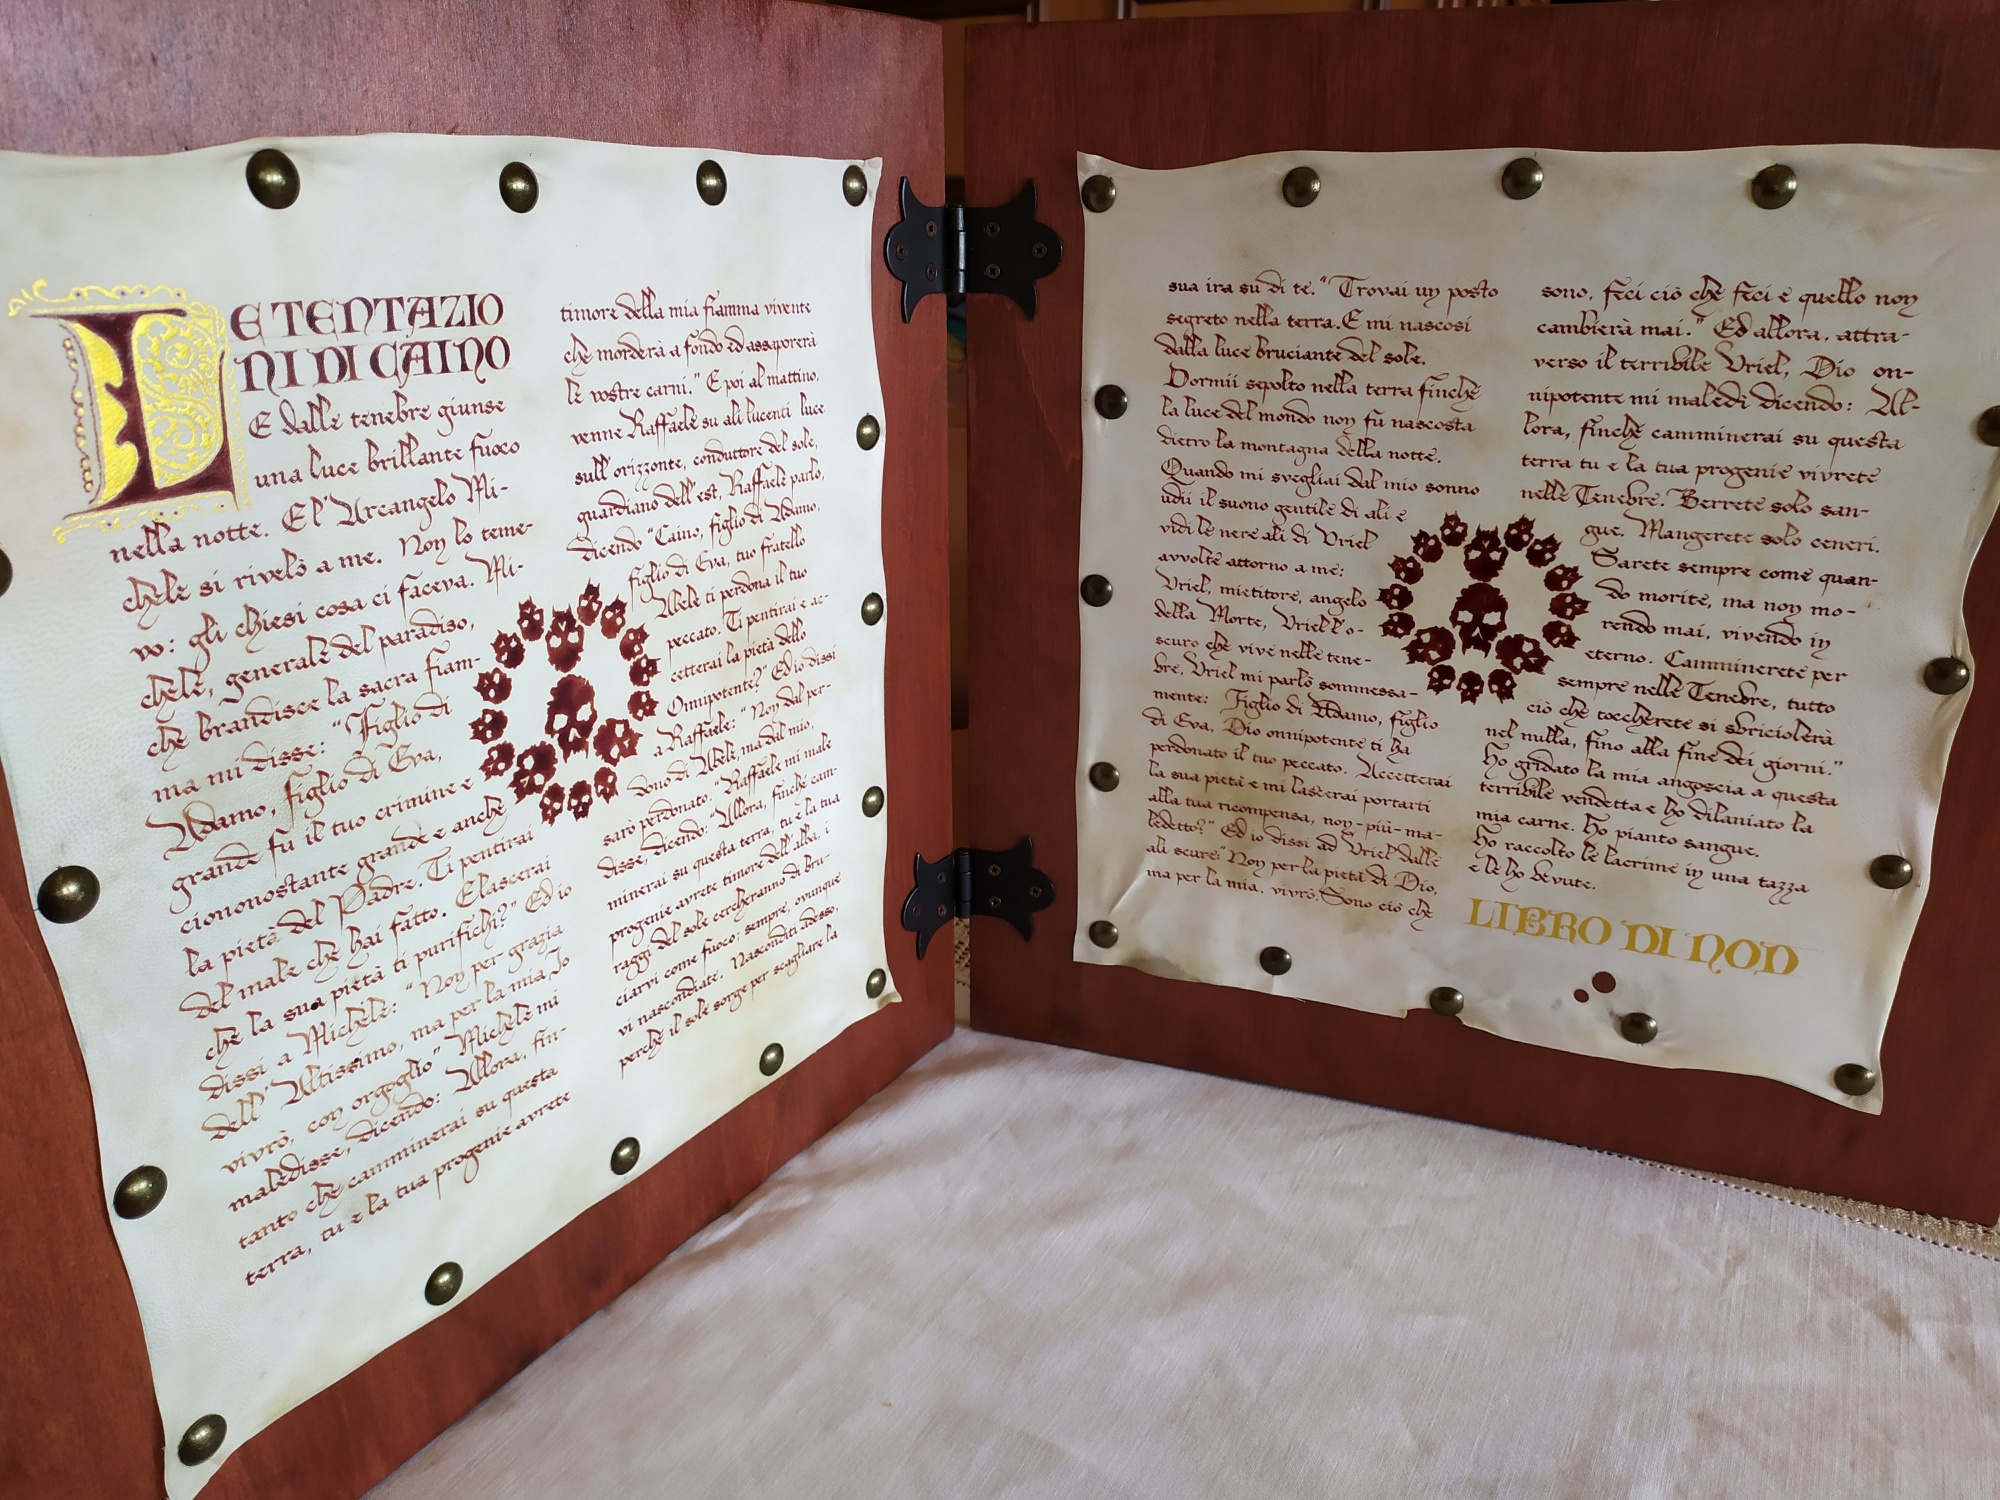 LE TENTAZIO
NI DI CAINO
E dalle tenebre giunse
una luce brillante fuoco
nella notte. E l' Arcangelo Mi-
chele si rivelò a me. Non lo teme-
vo: gli chiesi cosa ci faceva. Mi-
chele, generale del paradiso,
che brandisce la sacra fiam-
ma mi disse: "Figlio di
Adamo, figlio di Eva,
grande fu il tuo crimine e
ciononostante grande e anche
la pietà del Padre. Ti pentirai
del male che hai fatto. E lascerai
che la sua pietà ti purifichi?" Ed io
dissi a Michele: "Non per grazia
dell' Altissimo, ma per la mia. Io
vivrò, con orgoglio" Michele mi
maledisse, dicendo: Allora, fin-
tanto che camminerai su questa
terra, tu e la tua progenie avrete
timore della mia fiamma vivente
che morderà a fondo ed assaporerà
le vostre carni." E poi al mattino,
venne Raffaele su ali lucenti luce
sull' orizzonte, conduttore del sole,
guardiano dell' est, Raffaele parlo,
dicendo "Caino, figlio di Adamo,
figlio di Eva, tuo fratello
Abele ti perdona il tuo
peccato. Ti pentirai e ac-
cetterai la pietà dello
Onnipotente?" Ed io dissi
a Raffaele: "Non dal per-
dono di Abele, ma dal mio,
sarò perdonato. "Raffaele mi male
disse, dicendo: "Allora, finchè cam-
minerai su questa terra, tu e la tua
progenie avrete timore dell' alba, i
raggi del sole cercheranno di bru-
ciarvi come fuoco; sempre, ovunque
vi nascondiate. Nasconditi adesso,
perchè il sole sorge per scagliare la
sua ira su di te." Trovai un posto
segreto nella terra. E mi nascosi
dalla luce bruciante del sole.
Dormii sepolto nella terra finchè
la luce del mondo non fu nascosta
dietro la montagna della notte.
Quando mi svegliai dal mio sonno
udii il suono gentile di ali e
vidi le nere ali di Uriel
avvolte attorno a me:
Uriel, mietitore, angelo
della Morte, Uriel l'o-
scuro che vive nelle tene-
bre. Uriel mi parlò sommessa-
mente: Figlio di Adamo, figlio
di Eva. Dio onnipotente ti ha
perdonato il tuo peccato. Accetterai
la sua pietà e mi lascerai portarti
alla tua ricompensa, non-più-ma-
ledetto?" Ed io dissi ad Uriel dalle
ali scure: "Non per la pietà di Dio,
ma per la mia, vivrò. Sono ciò che
sono, feci ciò che feci e quello non
cambierà mai." Ed allora, attra-
verso il terribile Uriel, Dio on-
nipotente mi maledì dicendo: Al-
lora, finchè camminerai su questa
terra tu e la tua progenie vivrete
nelle Tenebre. Berrete solo san-
gue. Mangerete solo ceneri.
Sarete sempre come quan-
do morite, ma non mo-
rendo mai, vivendo in
eterno. Camminerete per
sempre nelle Tenebre, tutto
ciò che toccherete si sbriciolerà
nel nulla, fino alla fine dei giorni."
Ho gridato la mia angoscia a questa
terribile vendetta e ho dilaniato la
mia carne. Ho pianto sangue.
Ho raccolto le lacrime in una tazza
e le ho bevute.
LIBRO DI NOD